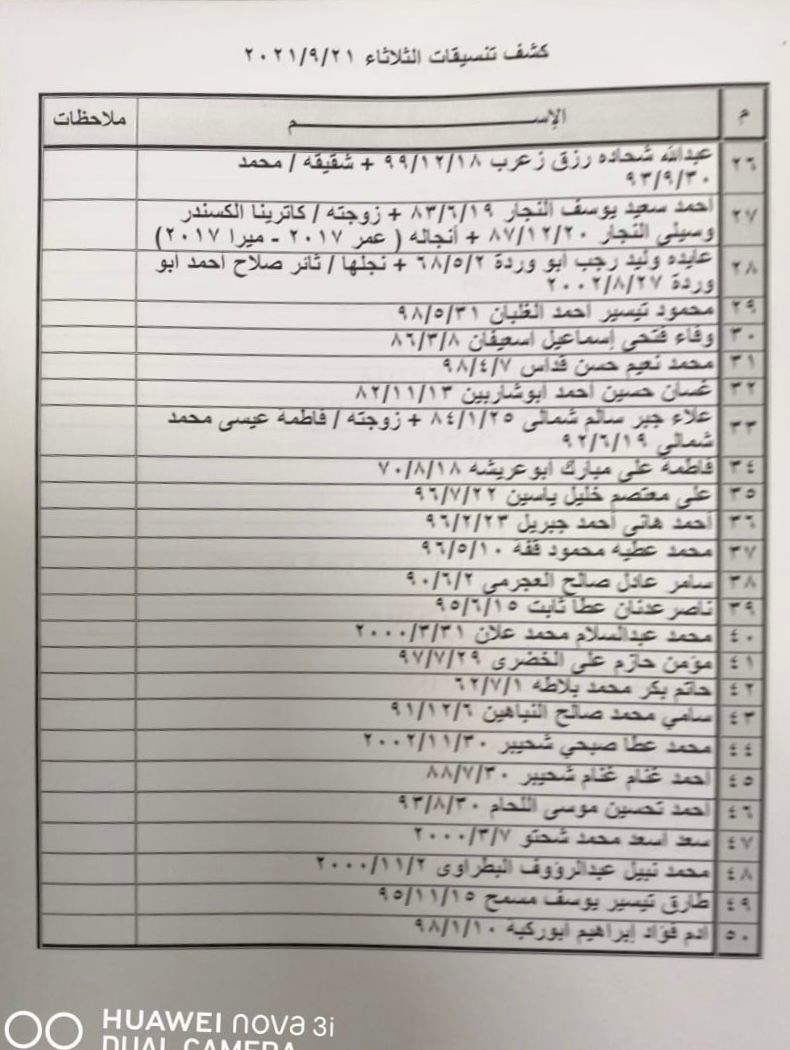 كشف تنسيقات الثلاثاء ٢٠٢١/٩/٢١
م الإســــــــم ملاحظات
٢٦ عبدالله شحاده رزق زعرب ٩٩/١٢/١٨ + شقيقه / محمد
٩٣/٩/٣٠
٢٧ احمد سعيد يوسف النجار ٨٣/٦/١٩ + زوجته / كاترينا الكسندر
وسيلى النجار ٨٧/١٢/٢٠ + أنجاله ( عمر ٢٠١٧ - ميرا ٢٠١٧)
٢٨ عايده وليد رجب ابو وردة ٦٨/٥/٢ + نجلها / ثائر صلاح احمد ابو
وردة ٢٠٠٢/٨/٢٧
٢٩ محمود تيسير احمد الغلبان ٩٨/٥/٣١
٣٠ وفاء فتحى إسماعيل اسعيفان ٨٦/٣/٨
٣١ محمد نعيم حسن قداس ٩٨/٤/٧
٣٢ غسان حسين احمد ابوشاربين ٨٢/١١/١٣
٣٣ علاء جبر سالم شمالى ٨٤/١/٢٥ + زوجته / فاطمة عيسى محمد
شمالى ٩٢/٦/١٩
٣٤ فاطمة على مبارك ابوعريشه ٧٠/٨/١٨
٣٥ على معتصم خليل ياسين ٩٦/٧/٢٢
٣٦ أحمد هانى أحمد جبريل ٩٦/٢/٢٣
٣٧ محمد عطيه محمود قفة ٩٦/٥/١٠
٣٨ سامر عادل صالح العجرمى ٩٠/٦/٢
٣٩ ناصر عدنان عطا ثابت ٩٥/٦/١٥
٤٠ محمد عبدالسلام محمد علان ٢٠٠٠/٣/٣١
٤١ مؤمن حازم على الخضرى ٩٧/٧/٢٩
٤٢ حاتم بكر محمد بلاطه ٦٢/٧/١
٤٣ سامي محمد صالح النباهين ٩١/١٢/٦
٤٤ محمد عطا صبحي شحيبر ٢٠٠٢/١١/٣٠
٤٥ احمد غنام غنام شحيبر ٨٨/٧/٣٠
٤٦ احمد تحسين موسى اللحام ٩٣/٨/٣٠
٤٧ سعد اسعد محمد شحتو ٢٠٠٠/٣/٧
٤٨ محمد نبيل عبدالرؤوف البطراوى ٢٠٠٠/١١/٢
٤٩ طارق تيسير يوسف مسمح ٩٥/١١/١٥
٥٠ ادم فؤاد إبراهيم ابوركبة ٩٨/١/١٠
HUAWEI nova 3i
DUAL CAMERA